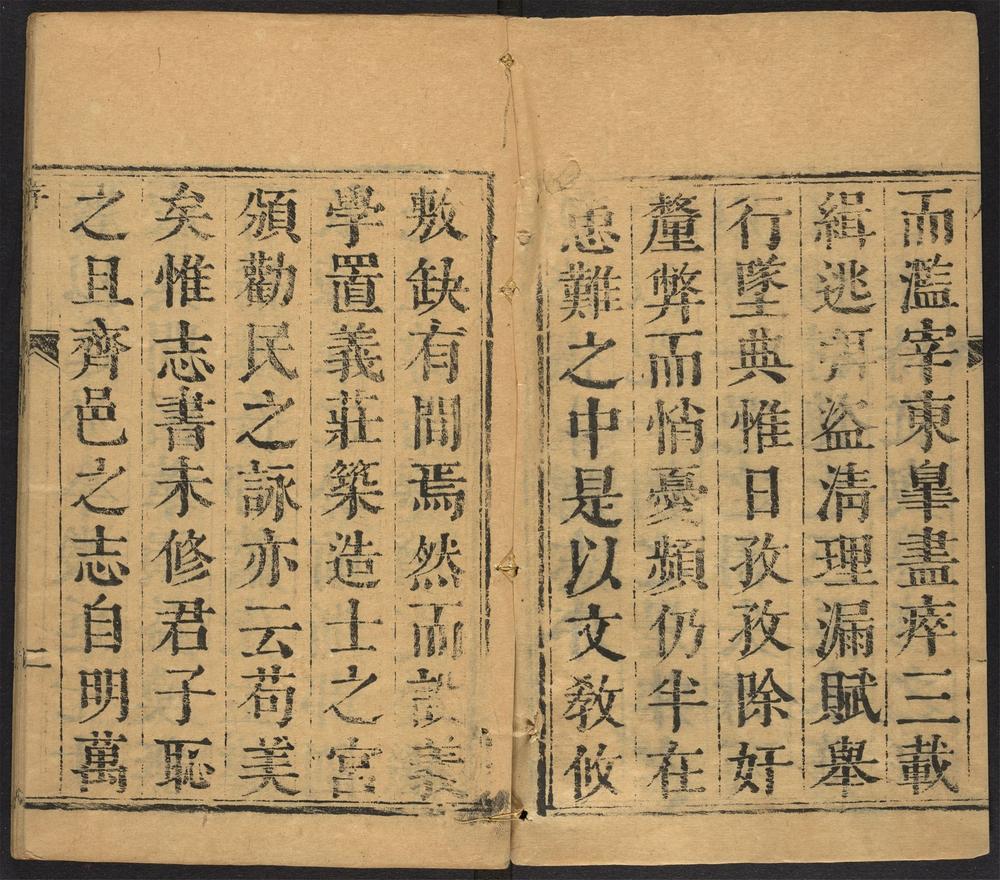 而濫宰東皐盡瘁三載
緝逃弭盜淸理漏賦舉
行墜典惟日孜孜除奸
釐弊而悄憂頻仍半在
患難之中是以文教攸
敷缺有間焉然而設義
學置義莊築造士之宮
頒勸民之詠亦云苟美
矣惟志書未修君子恥
之且齊邑之志自明萬
二